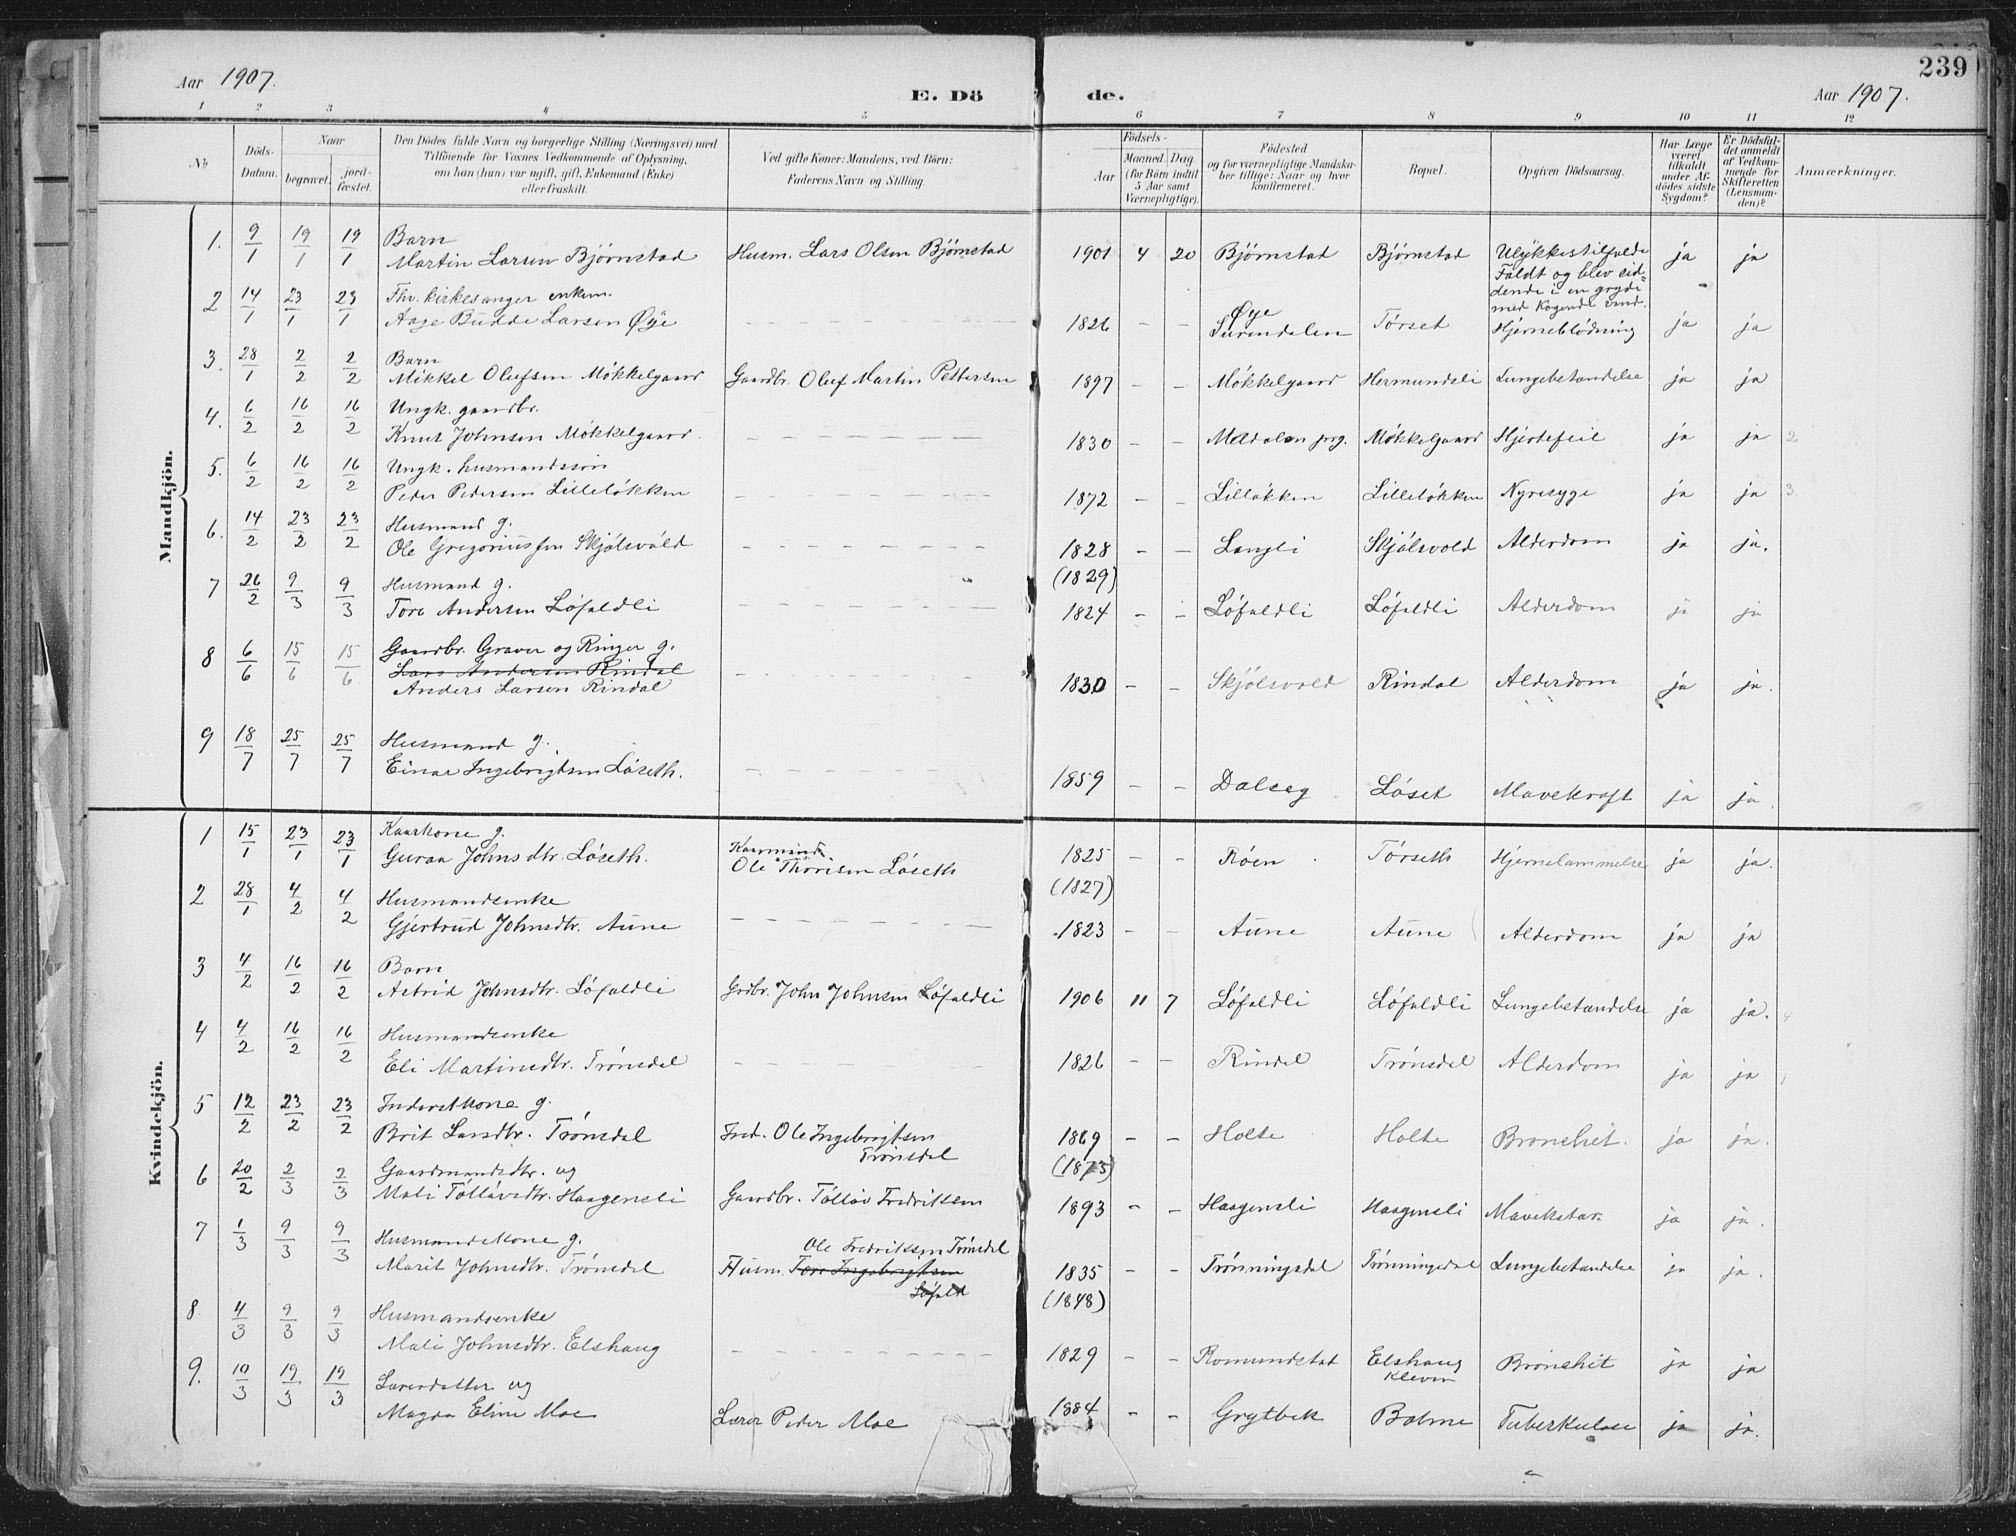 239
Aar 1907.
E. Dö
de.
Aar 1907.
1 2 3 4 5 6 7 8 9 10 11 12
No
Döds-
Datum.
Naar
begravet.
jord-
fæstet.
Den Dödes fulde Navn og borgerlige Stilling (Næringsvei) med
Tilföiende for Voxnes Vedkommende af Oplysning,
om han (hun) var ugift, gift, Enkemand (Enke)
eller fraskilt.
Ved gifte Koner: Mandens, ved Börn:
Faderens Navn og Stilling.
Födsels-
Aar
Maaned. Dag.
(for Börn indtil
5 Aar samt
Værnepligtige).
Födested
og for værnepligtige Mandska-
ber tillige: Naar og hvor
konfirmeret.
Bopæl.
Opgiven Dödsaarsag.
Har Læge
været
tilkaldt
under Af-
dödes sidste
Sygdom?
Er Dödsfal-
det anmeldt
af Vedkom-
mende for
Skifteretten
(Lensman-
den)?
Anmærkninger.
Mandkjön.
1. 9/1 19/1 19/1 Barn
Martin Larsen Bjørnstad Husm. Lars Olsen Bjørnstad 1901 4 20 Bjørnstad Bjørnstad Ulykkestilfælde ja ja
Faldt og blev sid-
dende i en gryde
med kogende vand.
2 14/1 23/1 23/1 Fhv. kirkesanger enkem.
Aage Budde Larsen Øye 1826 - - Øye
Surendalen Törset Hjerneblödning ja ja
3. 28/1 2/2 2/2 Barn
Mikkel Olufsen Møkkelgaard Gaardbr. Oluf Martin Pettersen 1897 - - Møkkelgaard Hermundsli Lungebetændelse ja ja
4. 6/2 16/2 16/2 Ungk. gaardbr.
Knut Johnsen Møkkelgaard. 1830 - - Meldalen prg. Møkkelgaard Hjertefeil ja ja 2
5. 6/2 16/2 16/2 Ungk. husmandssøn
Peder Pedersen Lilleløkken 1872 - - Lilløkken Lilleløkken Nyresyge ja ja 3
6. 14/2 23/2 23/2 Husmand g.
Ole Gregoriussen Skjølsvold 1828 - - Langli Skjølsvold Alderdom ja ja.
(1829)
7 26/2 9/3 9/3 Husmand g.
Tore Andersen Løfaldli 1824 - - Løfaldli Løfaldli Alderdom ja ja
8 6/6 15/6 15/6 Gaardbr. Graver og Ringer g.
Lars Andersen Rindal
Anders Larsen Rindal 1830 - - Skjølsvold Rindal Alderdom ja ja.
9 18/7 25/7 25/7 Husmand g.
Einar Ingebrigtsen Løseth. 1859 - - Dalseg Løset Mavekræft ja ja.
Kvindekjön.
1 15/1 23/1 23/1 Kaarkone g.
Guraa Johnsdtr. Løseth. Kaarmand
Ole Thoresen Løseth 1825 - - Røen Törseth Hjernelammelse ja ja.
(1827)
2 28/1 4/2 4/2 Husmandsenke
Gjertrud Johnsdtr. Aune 1823 - - Aune Aune Alderdom ja ja
3 4/2 16/2 16/2 Barn
Astrid Johnsdtr. Løfaldli Grdbr. John Johnsen Løfaldli 1906 11 7 Løfaldli Løfaldli Lungebetændelse ja ja. 4
4 4/2 16/2 16/2 Husmandsenke
Eli Martinsdtr. Trønsdal 1826 - - Rindal Trønsdal Alderdom ja ja 1
5 12/2 23/2 23/2 Inderstkone g.
Brit Larsdtr. Trønsdal Ind. Ole Ingebrigtsen
Trønsdal 1869 - - Holte Holte Bronchit. ja ja.
(1873)
6 20/2 2/3 2/3 Gaardmandsdtr. ug
Mali Tøllavsdtr. Haagensli Gaardbr. Tøllav Fredriksen 1893 - - Haagensli Haagensli Mavekatar. ja ja.
7 1/3 9/3 9/3 Husmandskone g.
Marit Johnsdtr. Trønsdal Ole Fredriksen Trønsdal
Husm. Tore Ingebrigtsen
Løfald 1835 - - Trønningsdal Trønningsdal Lungebetændelse ja ja.
(1848)
8. 4/3 9/3 9/3 Husmandsenke
Mali Johnsdtr. Elshaug 1829 - - Romundstad Elshaug
Kleven Bronchit ja ja
9. 10/3 19/3 19/3 Lærerdatter ug
Magda Eline Moe Lærer Peder Moe 1884 - - Grytbak Bolme Tuberkulose ja ja.